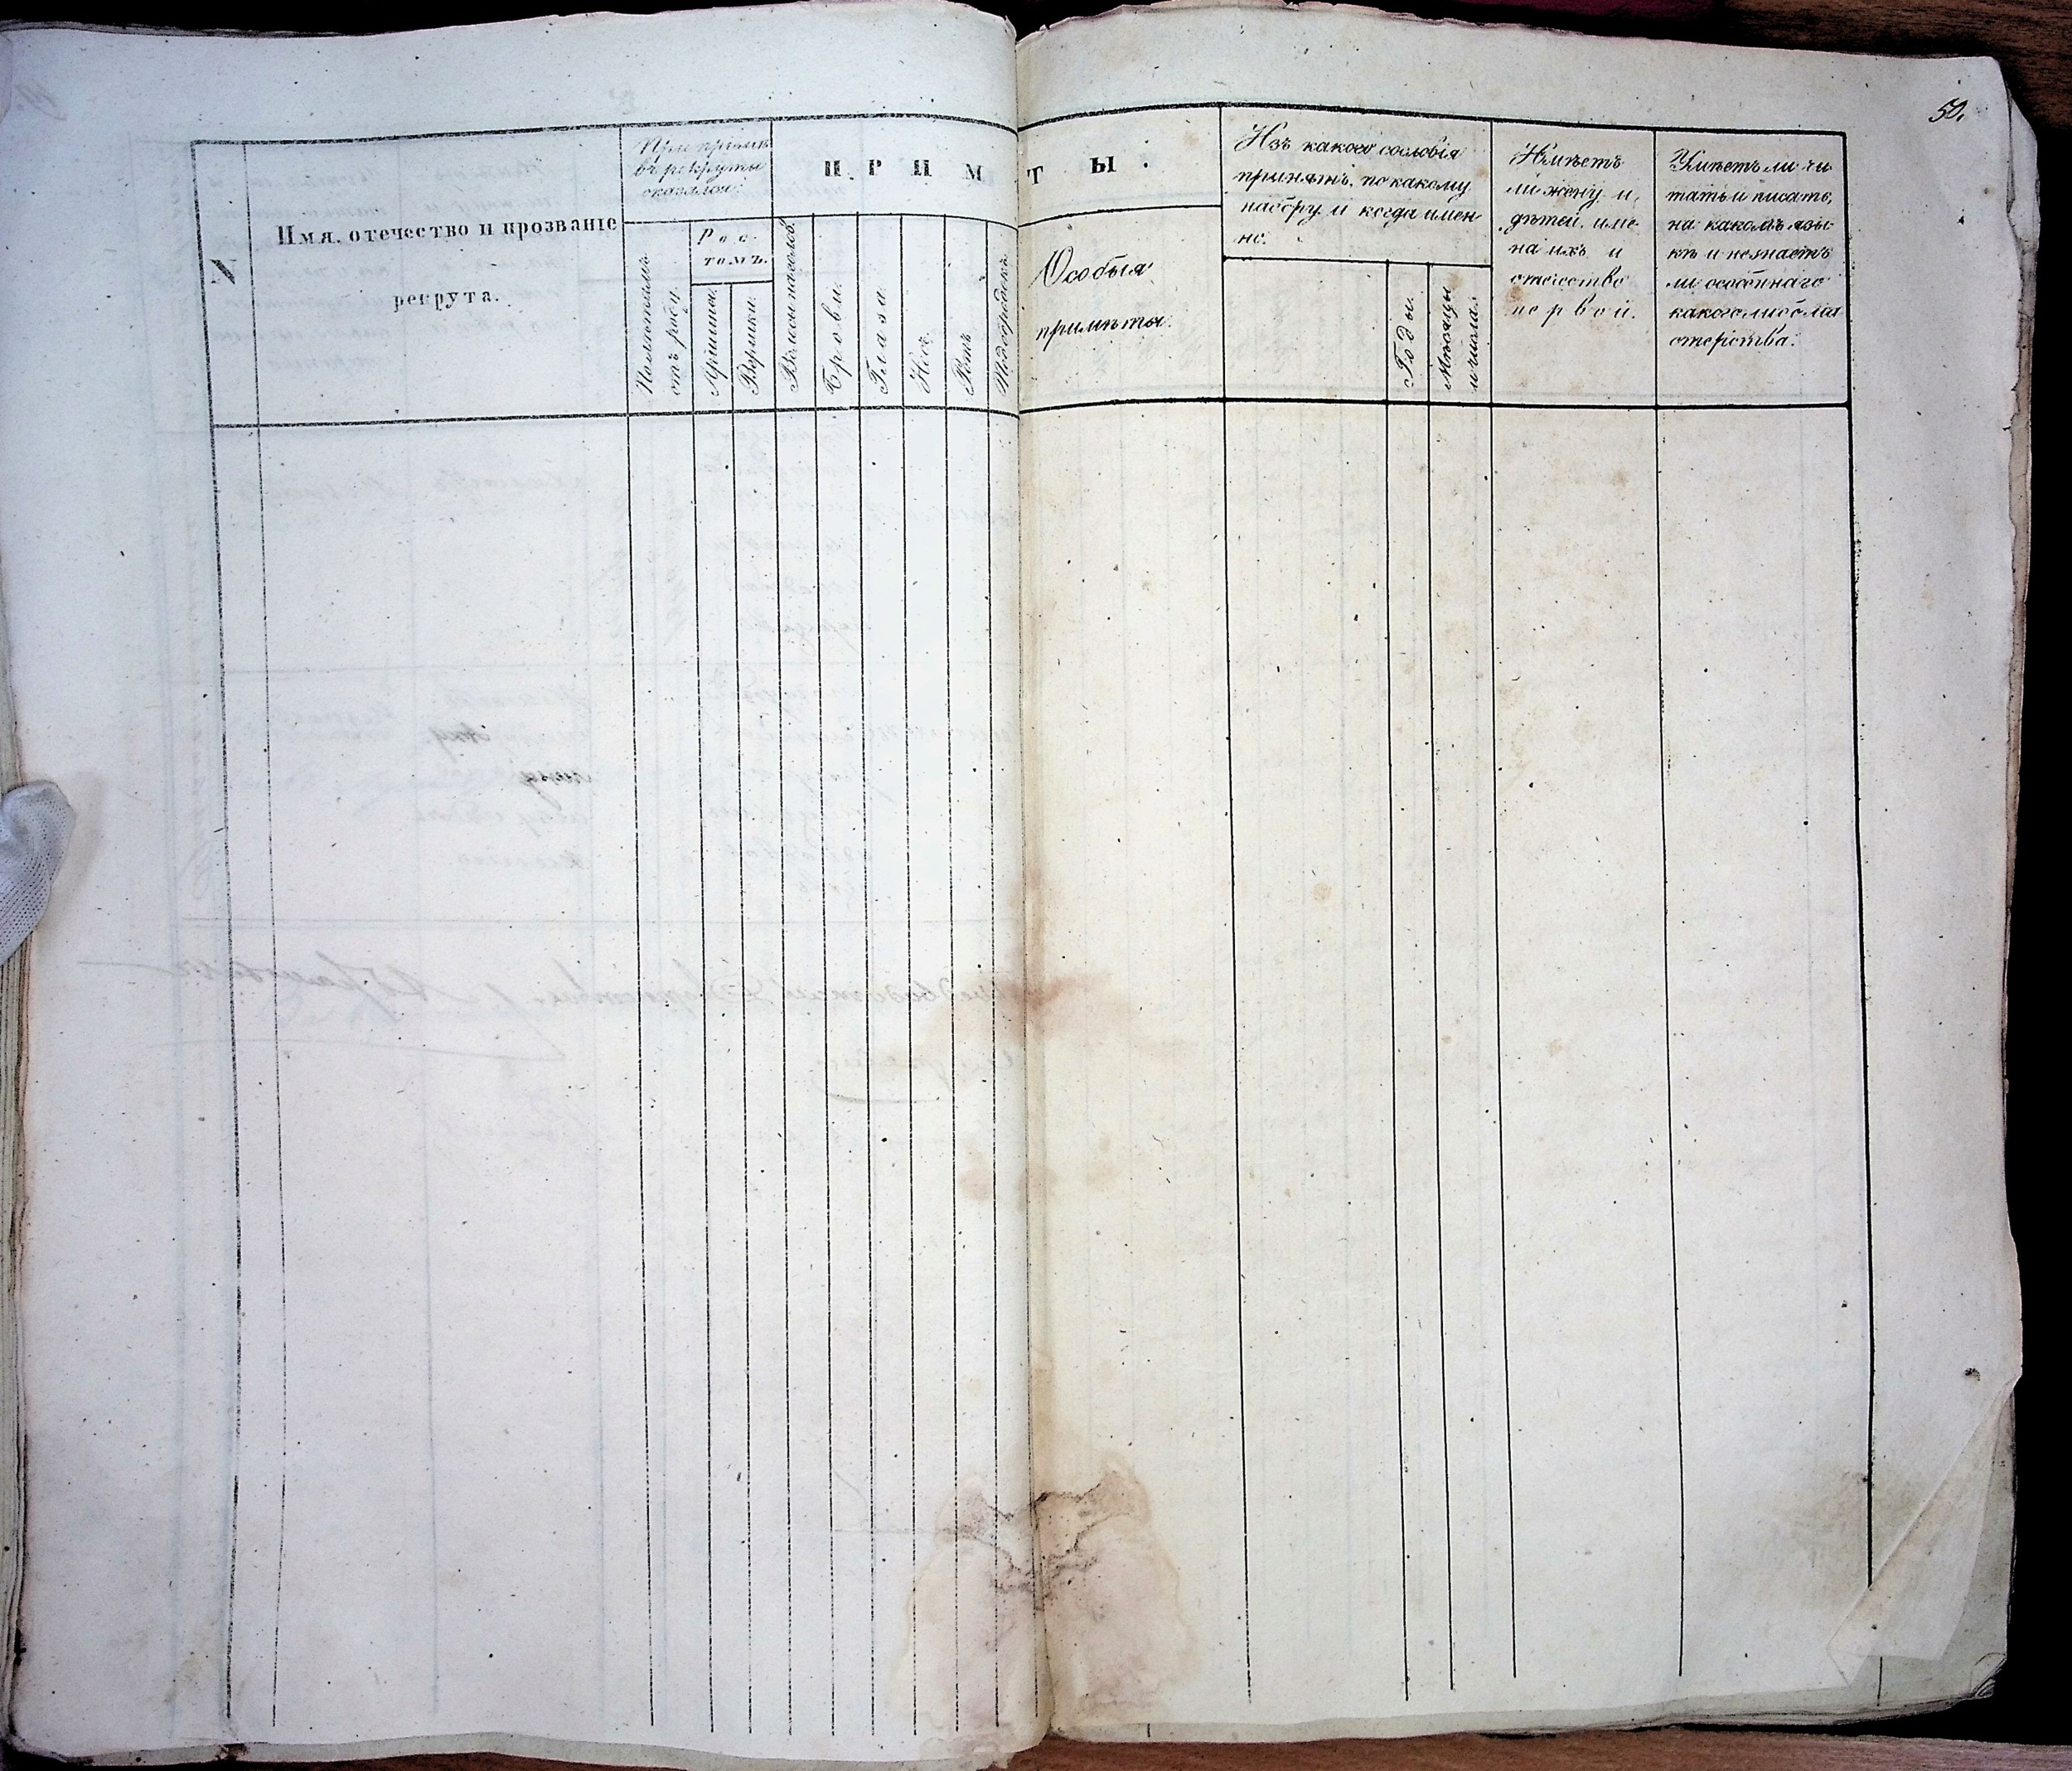 50.
N
Имя, отечество и прозваніе
рекрута.
При пріемѣ
въ рекруты
оказался:
Рос-
томъ.
Аршины.
Вершки.
ПРИМ
Брови.
Глаза.
Носъ.
Ротъ
Подбородокъ.
ТЫ:
Особыя
примѣты.
Изъ какого сословія
принятъ, по какому
набору и когда имен-
но.
Годы.
Мѣсяцы
и числа.
Имѣетъ
ли жену и
дѣтей, име-
на ихъ и
отечество
первой.
Умѣетъ ли чи-
тать и писать,
на какомъ язы-
кѣ и не знаетъ
ли особеннаго
какого либо ма-
стерства.